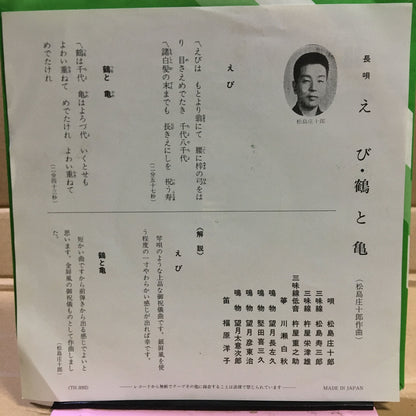 長唄 えび・鶴と亀
(松島庄十郎作曲)
松島庄十郎
えび
〽えびは もとより翁にて 腰に梓の弓をは
り 目さえめでたき 千代八千代
〽諸白髪の末までも 長きえにしを 祝う寿
(二分五十七秒)
鶴と亀
〽鶴は千代 亀はよろづ代 いくとせも
よわい重ねて めでたけれ よわい重ねて
めでたけれ
(二分四十三秒)
唄 松島庄十郎
三味線 松島寿三郎
三味線 杵屋栄津雄
三味線低音 杵屋重之助
箏 川瀬白秋
鳴物 望月長左久
鳴物 堅田喜三久
鳴物 望月彦東治
鳴物 望月太意次郎
笛 福原洋子
〈解説〉
えび
箏唄のような上品な御祝儀曲です。銀屏風を使
う程度の一寸やわらかい感じが出れば幸です。
鶴と亀
短かい曲ですから前弾きから出る感じでよいと
思います。金屏風の御祝儀ものとして作曲しまし
た。
(松島庄十郎)
レコードから無断でテープその他に録音することは法律で禁じられています
MADE IN JAPAN